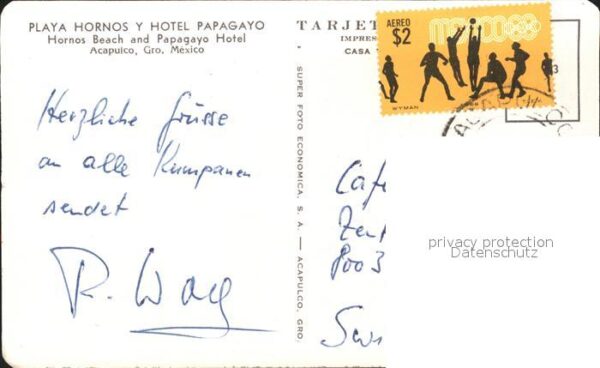 PLAYA HORNOS Y HOTEL PAPAGAYO
Hornos Beach and Papagayo Hotel
Acapulco, Gro. México
Herzliche Grüsse
an alle Kumpanen
sendet
SUPER FOTO ECONOMICA, S. A. — ACAPULCO, GRO.
TARJET
IMPRES
CASA
AEREO
$2
mexico68
WYMAN
ACAPU
Café
Zent
8003
privacy protection
Datenschutz